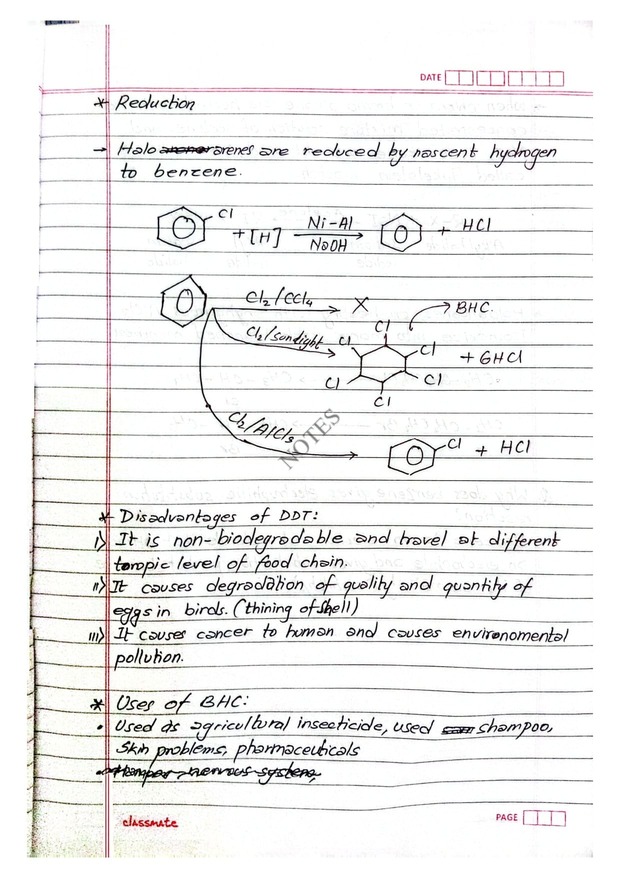 DATE
* Reduction
→ Halo arenes are reduced by nascent hydrogen
to benzene.
Cl
+ [H] Ni-Al NaOH + HCl
Cl2/CCl4 X BHC.
Cl2/Sunlight Cl Cl Cl Cl Cl Cl + 6HCl
Cl2/AlCl3 Cl + HCl
NOTES
* Disadvantages of DDT:
i) It is non-biodegradable and travel at different
toropic level of food chain.
ii) It causes degradation of quality and quantity of
eggs in birds. (thining of shell)
iii) It causes cancer to human and causes environomental
pollution.
* Uses of BHC:
• Used as agricultural insecticide, used shampoo,
skin problems, pharmaceuticals
• nervous system,
classmate
PAGE